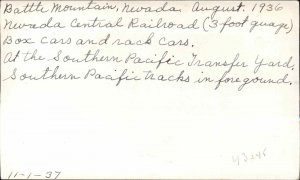 Battle Mountain, Nevada. August. 1936
Nevada Central Railroad (3 foot guage)
Box cars and rack cars.
At the Southern Pacific Transfer Yard.
Southern Pacific tracks in foreground.
11-1-37